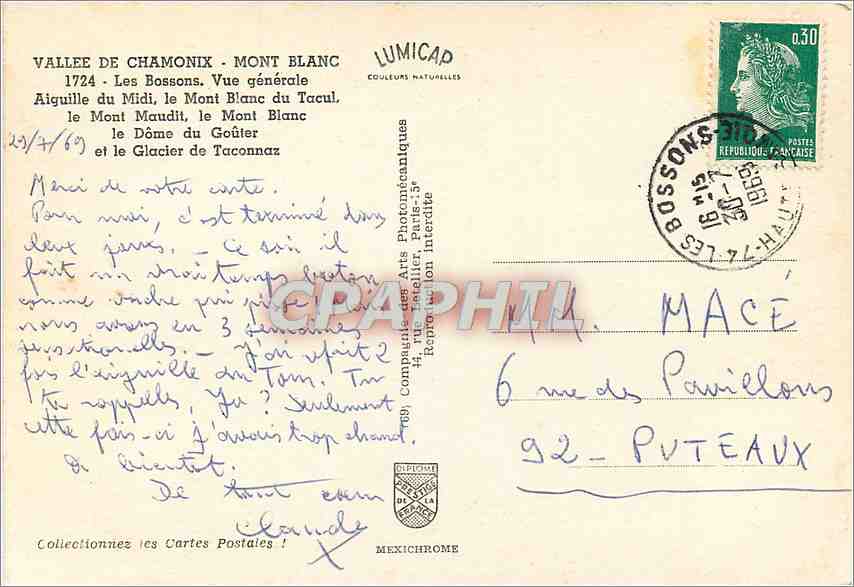 VALLEE DE CHAMONIX - MONT BLANC
1724 - Les Bossons. Vue générale
Aiguille du Midi, le Mont Blanc du Tacul,
le Mont Maudit, le Mont Blanc
le Dôme du Goûter
et le Glacier de Taconnaz
29/7/69
Merci de votre carte.
Pour moi, c'est terminé dans
deux jours. - Ce soir il
fait un vrai temps breton
comme
nous avons eu 3 semaines
- J'ai refait 2
fois l'aiguille du Tour. Tu
te rappelles, ? Seulement
cette fois-ci j'avais trop chaud.
A bientôt.
De tout coeur
Claude
Collectionnez les Cartes Postales !
LUMICAP
COULEURS NATURELLES
(69) Compagnie des Arts Photomécaniques
44, rue Letellier, Paris-15e
Reproduction interdite
DIPLOME
PRESTIGE
DE LA
FRANCE
MEXICHROME
CPAPHIL
0,30
POSTES
REPUBLIQUE FRANCAISE
74-LES BOSSONS-HAUTE-SAVOIE
16 H 15
30-7
1969
MM. MACÉ
6 rue des Pavillons
92 - PUTEAUX